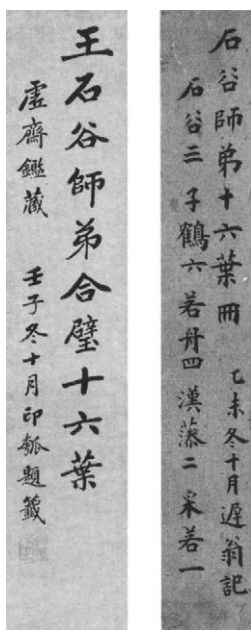 石谷師弟十六葉冊 乙未冬十月遲翁記
石谷三 子鶴六 若舟四 漢藻二 采若一
王石谷師弟合璧十六葉
虛齋鑑藏 壬子冬十月印瓠題籤